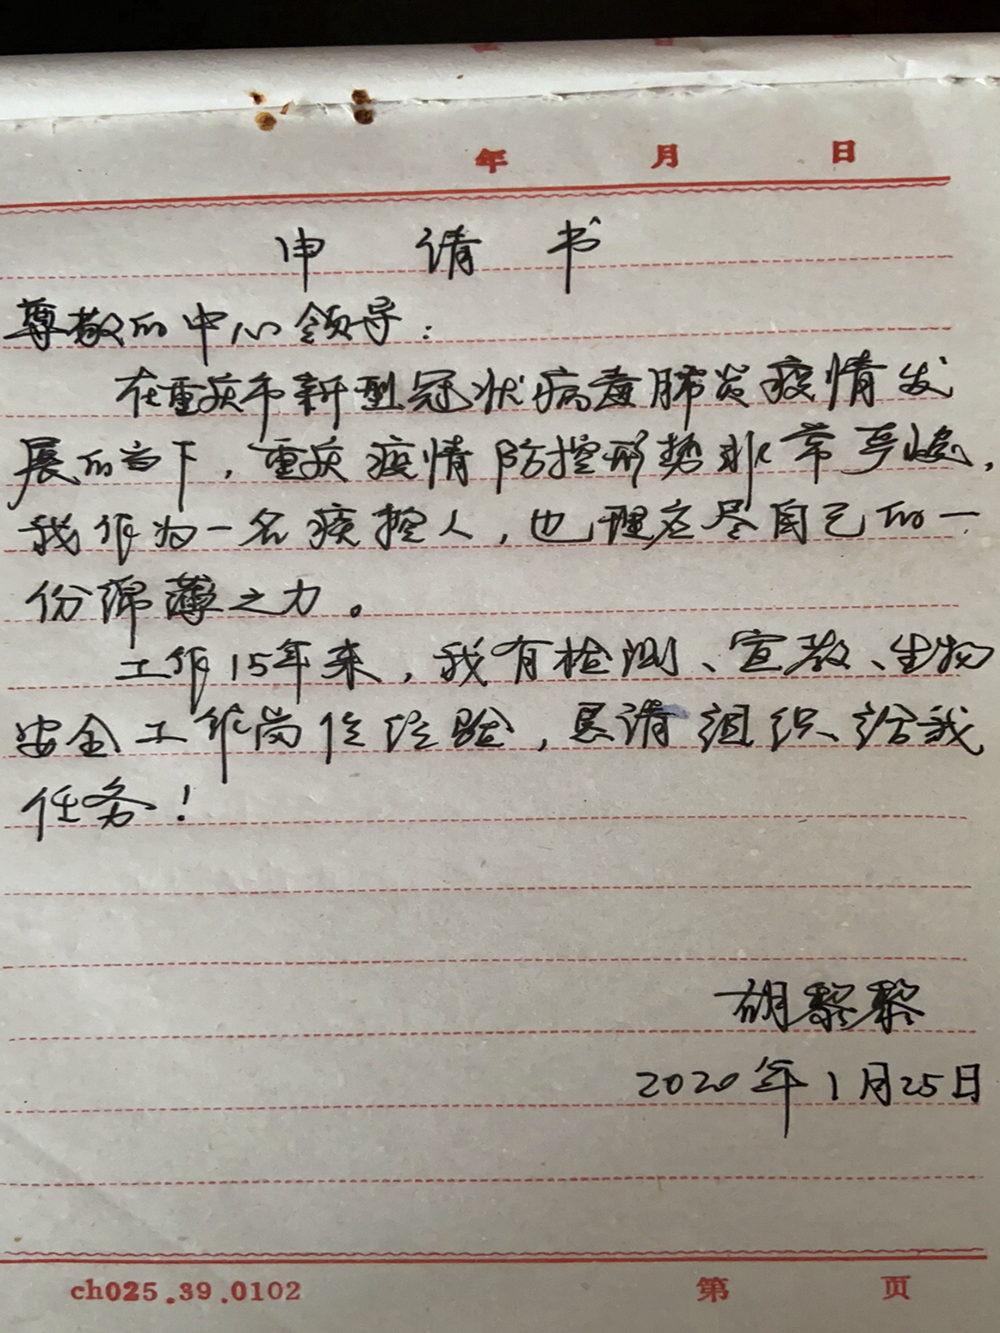 年 月 日
申 请 书
尊敬的中心领导：
在重庆市新型冠状病毒肺炎疫情发
展的当下，重庆疫情防控形势非常严峻，
我作为一名疾控人，也理应尽自己的一
份绵薄之力。
工作15年来，我有检测、宣教、生物
安全工作岗位经验，恳请组织给我
任务！
胡黎黎
2020年1月25日
ch025.39.0102 第 页